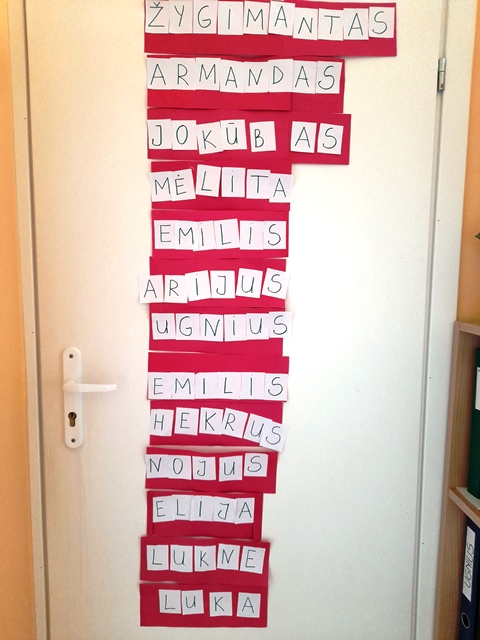 ŽYGIMANTAS
ARMANDAS
JOKŪBAS
MĖLITA
EMILIS
ARIJUS
UGNIUS
EMILIS
HEKRUS
NOJUS
ELIJA
LUKNE
LUKA